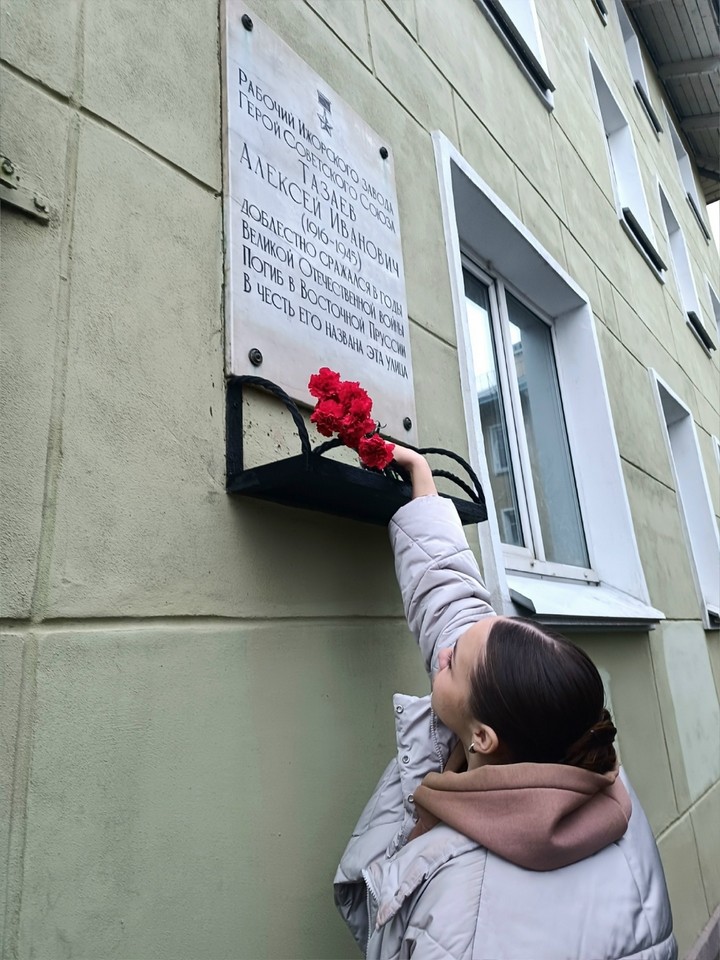 Рабочий Ижорского завода
Герой Советского Союза
ТАЗАЕВ
Алексей Иванович
(1916-1945)
доблестно сражался в годы
Великой Отечественной войны
Погиб в Восточной Пруссии
В честь его названа эта улица